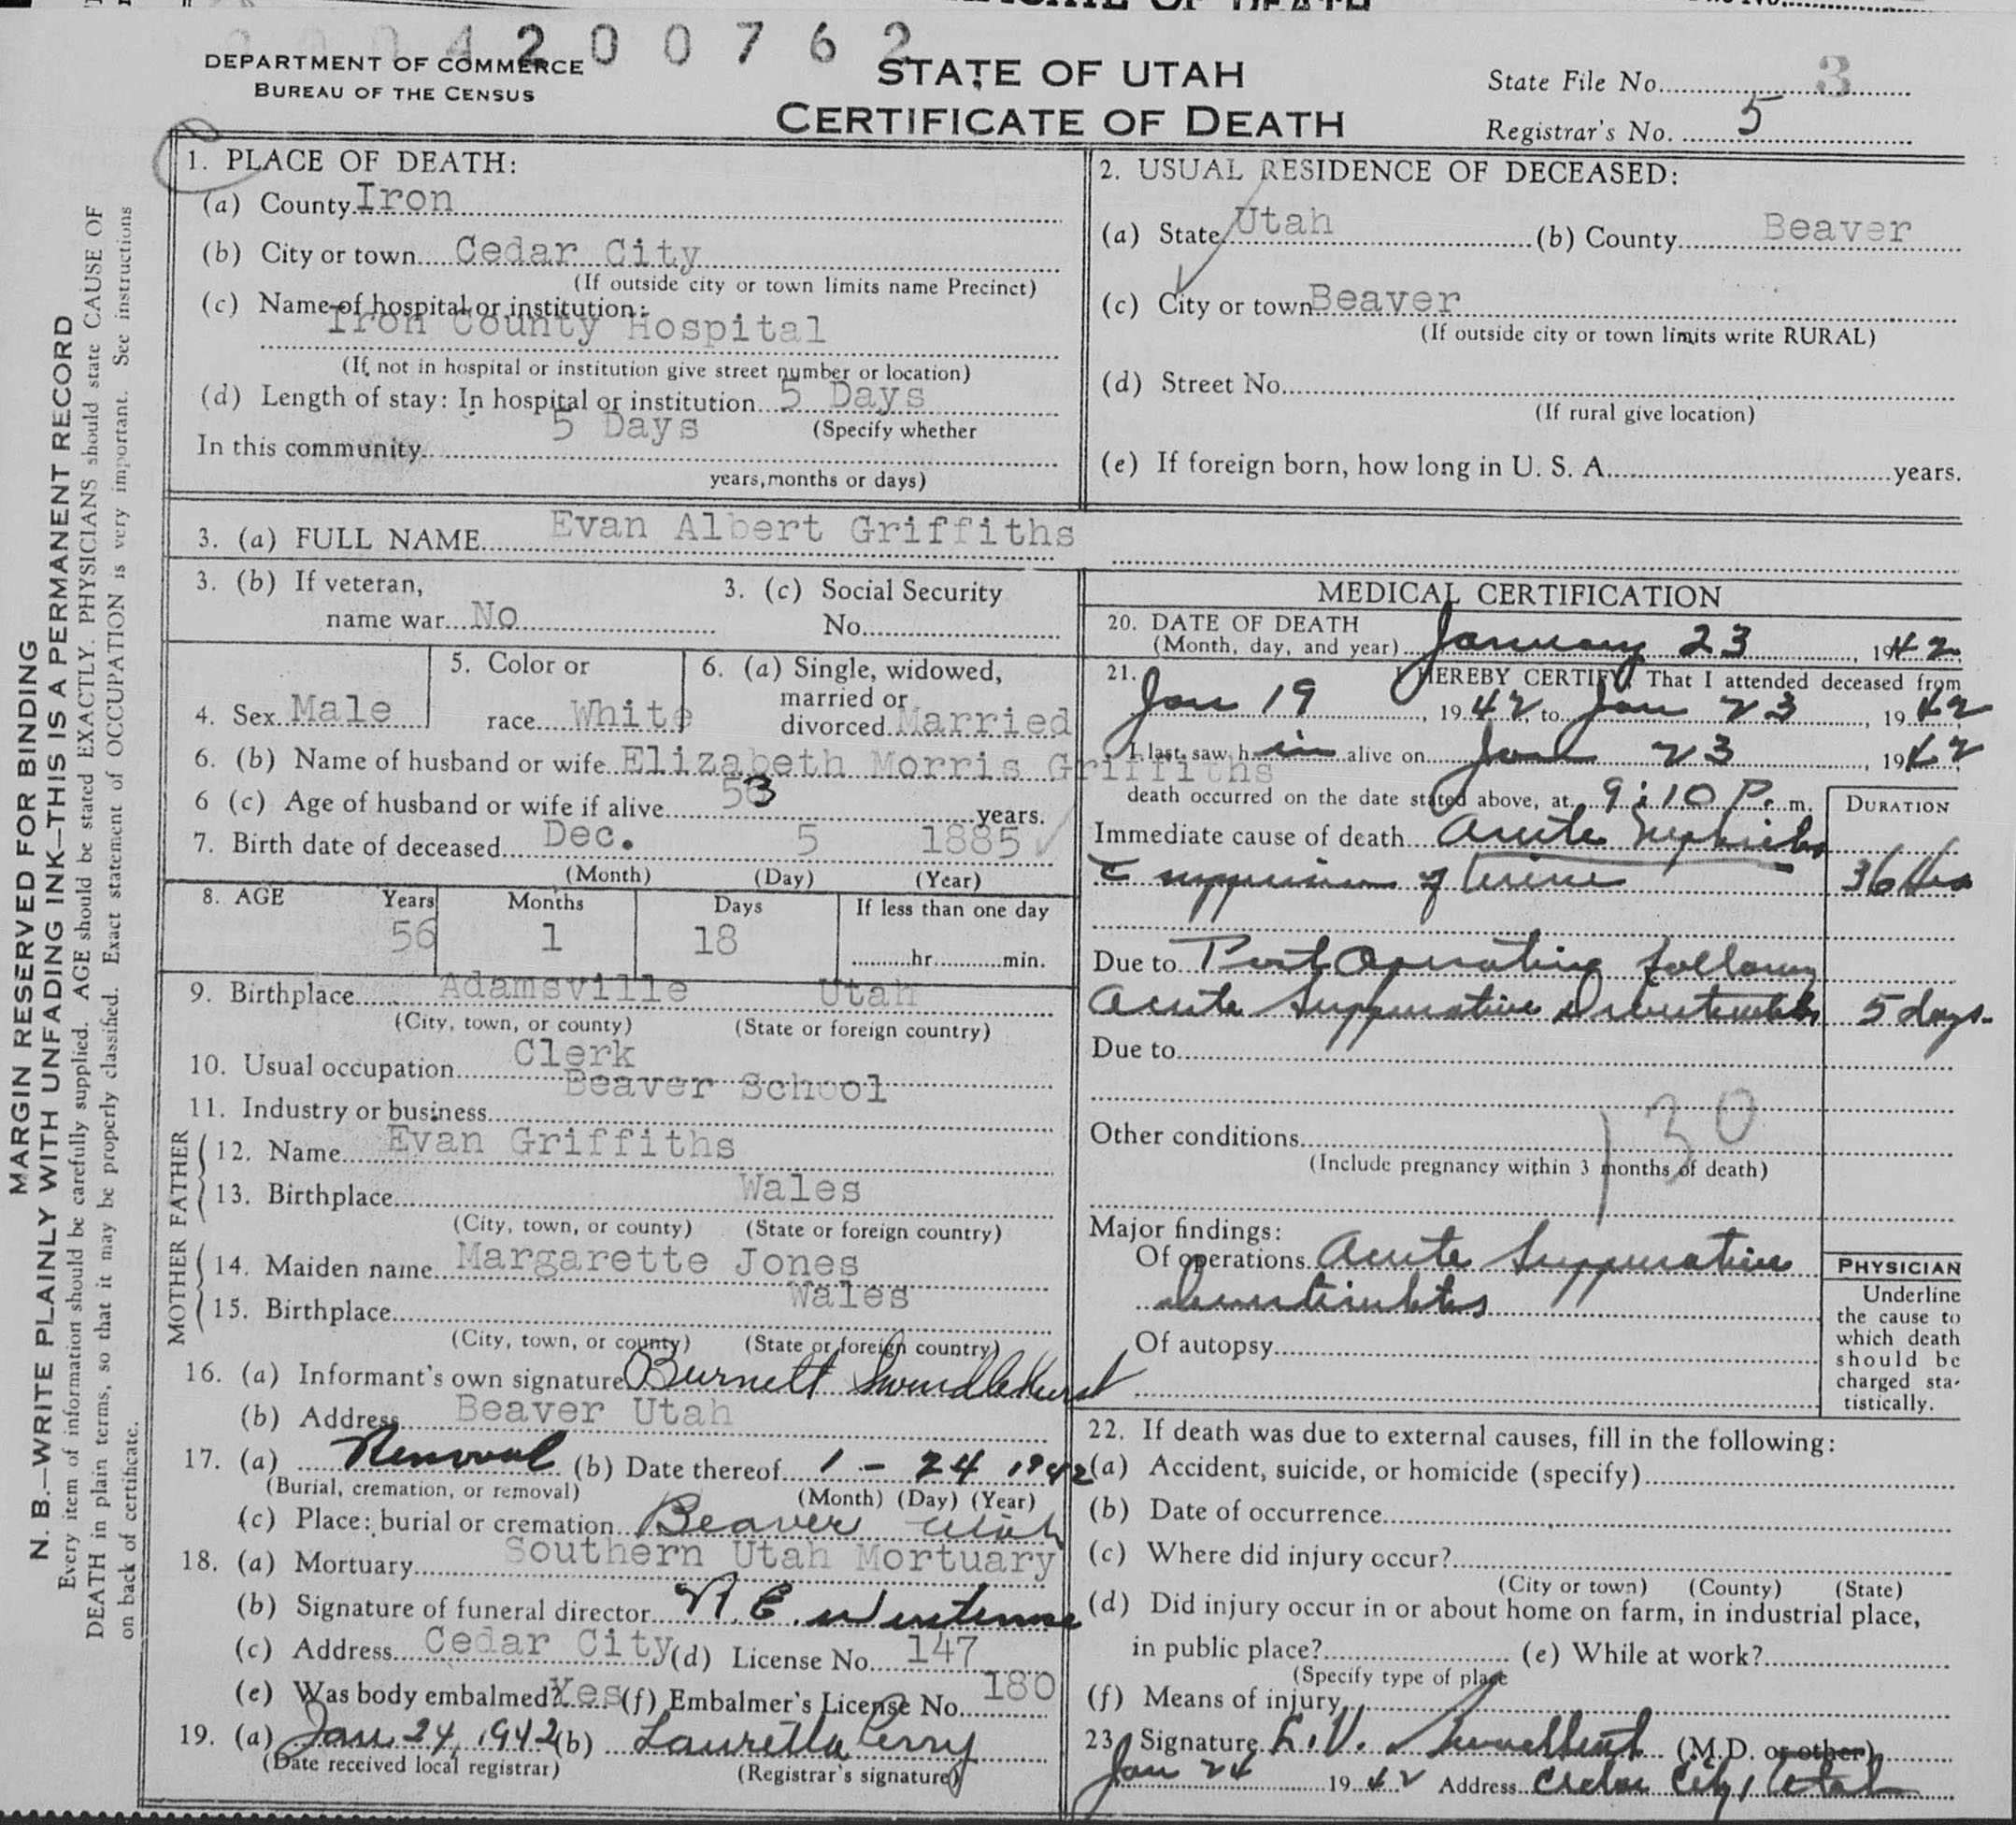 200762
DEPARTMENT OF COMMERCE
BUREAU OF THE CENSUS
STATE OF UTAH
CERTIFICATE OF DEATH
State File No. 3
Registrar's No. 5
1. PLACE OF DEATH:
(a) County Iron
(b) City or town Cedar City
(If outside city or town limits name Precinct)
(c) Name of hospital or institution:
Iron County Hospital
(If not in hospital or institution give street number or location)
(d) Length of stay: In hospital or institution 5 Days
5 Days (Specify whether
In this community
years, months or days)
2. USUAL RESIDENCE OF DECEASED:
(a) State Utah (b) County Beaver
(c) City or town Beaver
(If outside city or town limits write RURAL)
(d) Street No.
(If rural give location)
(e) If foreign born, how long in U. S. A. years.
3. (a) FULL NAME Evan Albert Griffiths
3. (b) If veteran,
name war No
3. (c) Social Security
No.
4. Sex Male
5. Color or
race White
6. (a) Single, widowed,
married or
divorced Married
6. (b) Name of husband or wife Elizabeth Morris Griffiths
6 (c) Age of husband or wife if alive 53 years.
7. Birth date of deceased Dec. 5 1885
(Month) (Day) (Year)
8. AGE Years Months Days If less than one day
56 1 18 hr. min.
9. Birthplace Adamsville Utah
(City, town, or county) (State or foreign country)
10. Usual occupation Clerk
Beaver School
11. Industry or business
FATHER
12. Name Evan Griffiths
13. Birthplace Wales
(City, town, or county) (State or foreign country)
MOTHER
14. Maiden name Margarette Jones
15. Birthplace Wales
(City, town, or county) (State or foreign country)
16. (a) Informant's own signature Burnell Swindlehurst
(b) Address Beaver Utah
17. (a) Removal (b) Date thereof 1 - 24 1942
(Burial, cremation, or removal) (Month) (Day) (Year)
(c) Place: burial or cremation Beaver Utah
18. (a) Mortuary Southern Utah Mortuary
(b) Signature of funeral director
(c) Address Cedar City (d) License No. 147
(e) Was body embalmed? Yes (f) Embalmer's License No. 180
19. (a) Jan. 24, 1942 (b) Lauretta Perry
(Date received local registrar) (Registrar's signature)
MEDICAL CERTIFICATION
20. DATE OF DEATH
(Month, day, and year) January 23, 1942
21. I HEREBY CERTIFY, That I attended deceased from
Jan 19, 1942, to Jan 23, 1942
I last saw him alive on Jan 23, 1942
death occurred on the date stated above, at 9:10 P. m.
DURATION
Immediate cause of death Acute Nephritis
c suppression of Urine 36 Hrs
Due to Post Operative following
Acute Suppurative Diverticulitis 5 days.
Due to
Other conditions
(Include pregnancy within 3 months of death)
130
Major findings:
Of operations Acute Suppurative
Diverticulitis
Of autopsy
PHYSICIAN
Underline
the cause to
which death
should be
charged sta-
tistically.
22. If death was due to external causes, fill in the following:
(a) Accident, suicide, or homicide (specify)
(b) Date of occurrence
(c) Where did injury occur?
(City or town) (County) (State)
(d) Did injury occur in or about home on farm, in industrial place,
in public place? (e) While at work?
(Specify type of place
(f) Means of injury
23. Signature (M.D. or other)
Jan 24 1942 Address Cedar City, Utah
MARGIN RESERVED FOR BINDING
N. B.—WRITE PLAINLY WITH UNFADING INK—THIS IS A PERMANENT RECORD
Every item of information should be carefully supplied. AGE should be stated EXACTLY. PHYSICIANS should state CAUSE OF
DEATH in plain terms, so that it may be properly classified. Exact statement of OCCUPATION is very important. See instructions
on back of certificate.